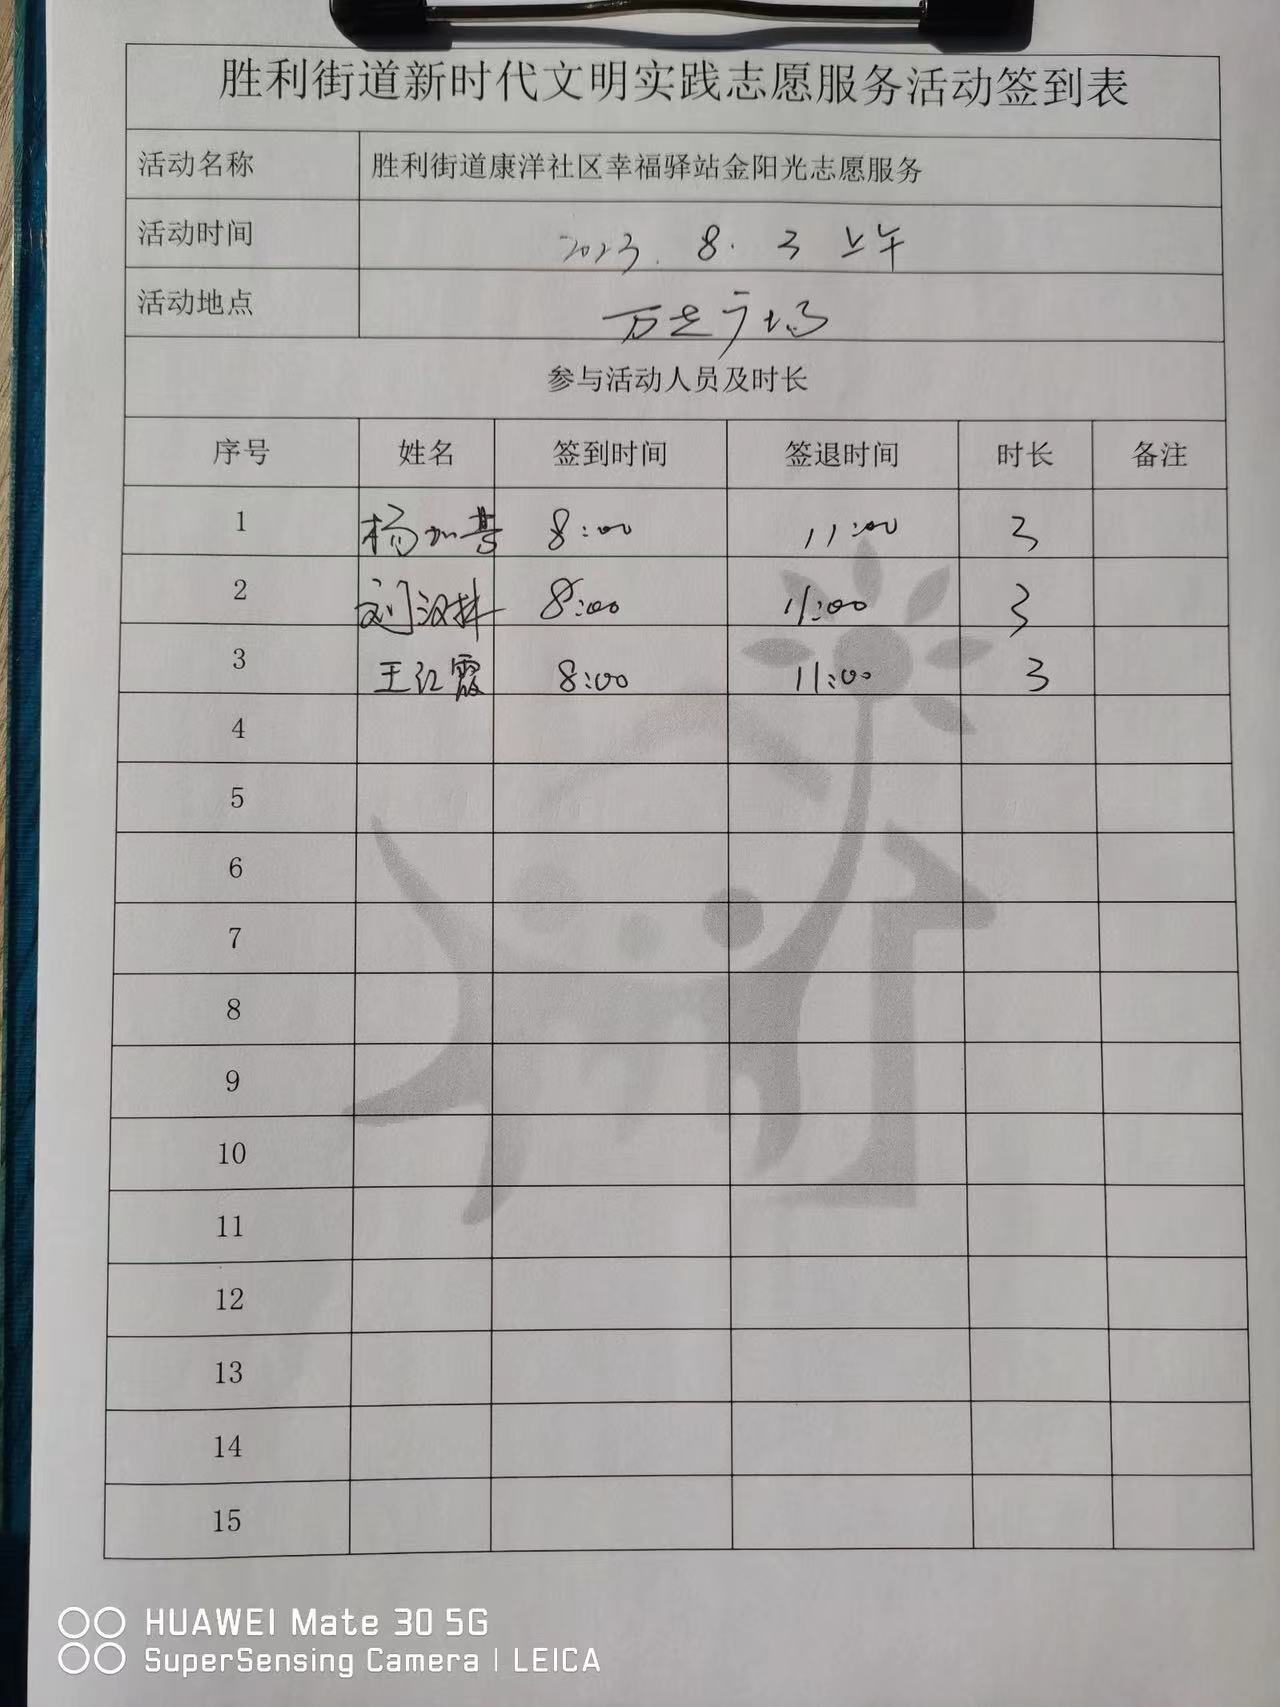 胜利街道新时代文明实践志愿服务活动签到表
活动名称 胜利街道康洋社区幸福驿站金阳光志愿服务
活动时间 2023.8.3 上午
活动地点 万达广场
参与活动人员及时长
序号 姓名 签到时间 签退时间 时长 备注
1 杨加 8:00 11:00 3
2 刘汉 8:00 11:00 3
3 王红霞 8:00 11:00 3
4
5
6
7
8
9
10
11
12
13
14
15
HUAWEI Mate 30 5G
SuperSensing Camera | LEICA